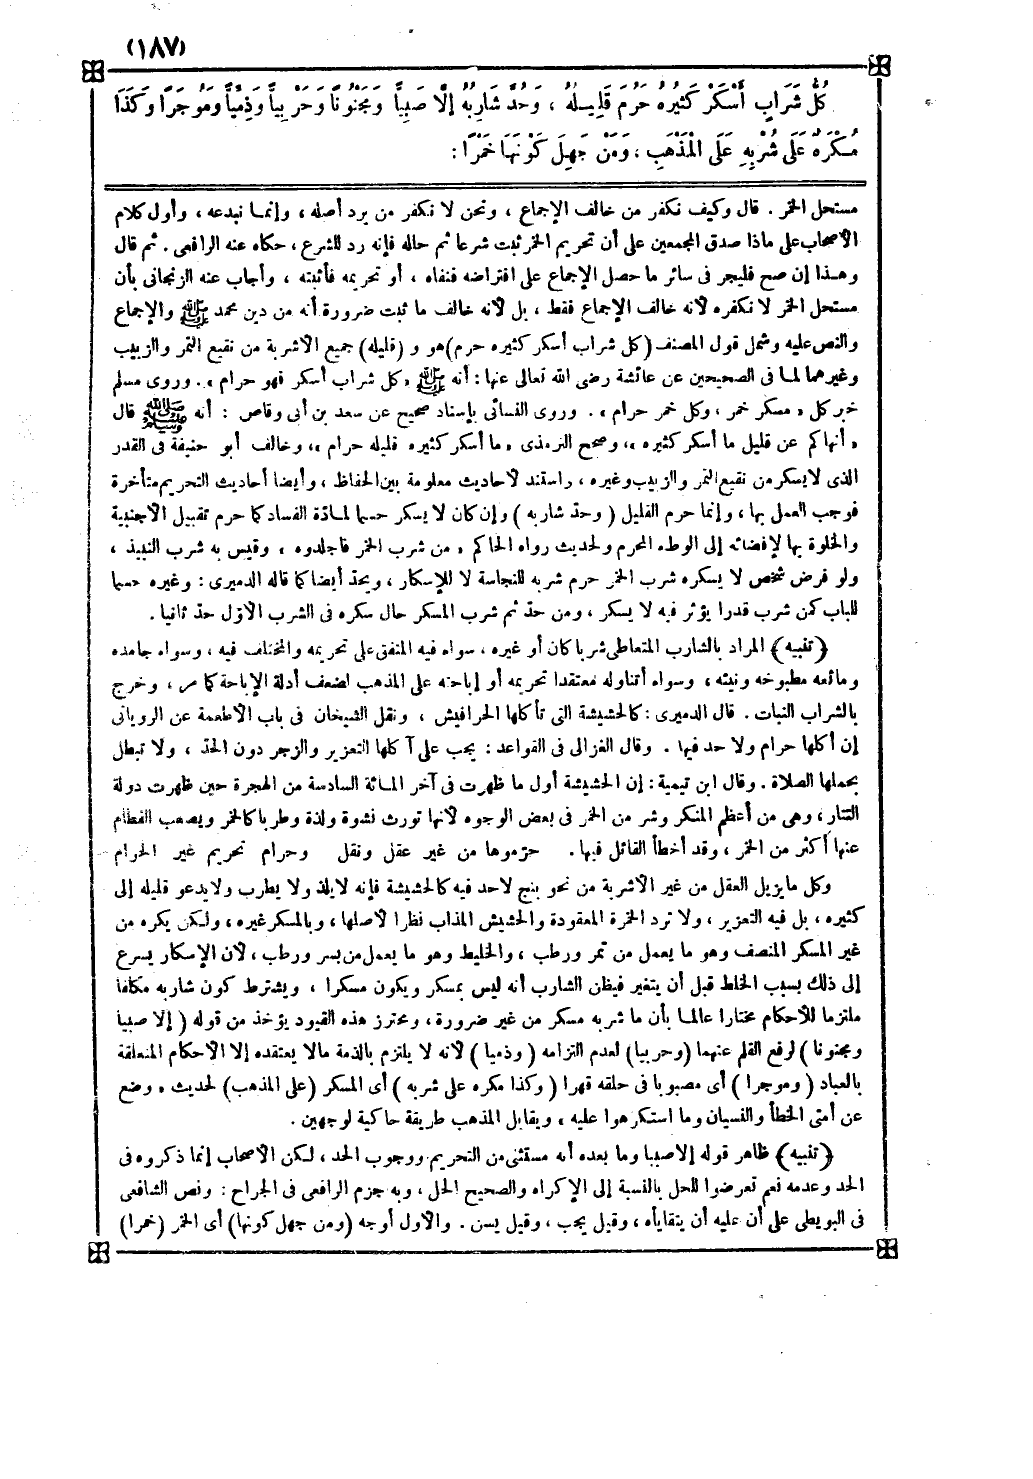 (١٨٧)
كُلُّ شَرَابٍ أَسْكَرَ كَثِيرُهُ حَرُمَ قَلِيلُهُ ، وَحُدَّ شَارِبُهُ إلَّا صَبِيًّا وَمَجْنُونًا وَحَرْبِيًّا وَذِمِّيًّا وَمُوجَرًا وَكَذَا
مُكْرَهٌ عَلَى شُرْبِهِ عَلَى الْمَذْهَبِ ، وَمَنْ جَهِلَ كَوْنَهَا خَمْرًا :
مستحل الخمر . قال وكيف نكفر من خالف الإجماع ، ونحن لا نكفر من يرد أصله ، وإنما نبدعه ، وأول كلام
الأصحاب على ماذا صدق المجمعين على أن تحريم الخمر ثبت شرعا ثم حاله فإنه رد للشرع ، حكاه عنه الرافعى . ثم قال
وهذا إن صح فليجر فى سائر ما حصل الإجماع على افتراضه فنفاه ، أو تحريمه فأثبته ، وأجاب عنه الزنجانى بأن
مستحل الخمر لا نكفره لأنه خالف الإجماع فقط ، بل لأنه خالف ما ثبت ضرورة أنه من دين محمد ﷺ والإجماع
والنص عليه وشمل قول المصنف (كل شراب أسكر كثيره حرم) هو و (قليله) جميع الأشربة من نقيع التمر والزبيب
وغيرهما لما فى الصحيحين عن عائشة رضى الله تعالى عنها : أنه ﷺ «كل شراب أسكر فهو حرام» . وروى مسلم
خبر كل « مسكر خمر ، وكل خمر حرام » . وروى النسائى بإسناد صحيح عن سعد بن أبى وقاص : أنه ﷺ قال
« أنهاكم عن قليل ما أسكر كثيره » ، وصحح الترمذى « ما أسكر كثيره قليله حرام » ، وخالف أبو حنيفة فى القدر
الذى لا يسكر من نقيع التمر والزبيب وغيره ، واستند لأحاديث معلومة بين الحفاظ ، وأيضا أحاديث التحريم متأخرة
فوجب العمل بها ، وإنما حرم القليل ( وحد شاربه ) وإن كان لا يسكر حسما لمادة الفساد كما حرم تقبيل الأجنبية
والخلوة بها لإفضائه إلى الوطء المحرم ولحديث رواه الحاكم « من شرب الخمر فاجلدوه » وقيس به شرب النبيذ ،
ولو فرض شخص لا يسكره شرب الخمر حرم شربه للنجاسة لا للإسكار ، ويحد أيضا كما قاله الدميرى : وغيره حسما
للباب كمن شرب قدرا يؤثر فيه لا يسكر ، ومن حد ثم شرب المسكر حال سكره فى الشرب الأول حد ثانيا .
﴿ تنبيه ﴾ المراد بالشارب المتعاطى شربا كان أو غيره ، سواء فيه المتفق على تحريمه والمختلف فيه ، وسواء جامده
ومائعه مطبوخه ونيئه ، وسواء أتناوله معتقدا تحريمه أو إباحته على المذهب لضعف أدلة الإباحة كما مر ، وخرج
بالشراب النبات . قال الدميرى : كالحشيشة التى تأكلها الحرافيش ، ونقل الشيخان فى باب الأطعمة عن الرويانى
إن أكلها حرام ولا حد فيها . وقال الغزالى فى القواعد : يجب على آكلها التعزير والزجر دون الحد ، ولا تبطل
بحملها الصلاة . وقال ابن تيمية : إن الحشيشة أول ما ظهرت فى آخر المائة السادسة من الهجرة حين ظهرت دولة
التتار ، وهى من أعظم المنكر وشر من الخمر فى بعض الوجوه لأنها تورث نشوة ولذة وطربا كالخمر ويصعب الفطام
عنها أكثر من الخمر ، وقد أخطأ القائل فيها . حرّموها من غير عقل ونقل وحرام تحريم غير الحرام
وكل ما يزيل العقل من غير الأشربة من نحو بنج لا حد فيه كالحشيشة فإنه لا يلذ ولا يطرب ولا يدعو قليله إلى
كثيره ، بل فيه التعزير ، ولا ترد الخمرة المعقودة والحشيش المذاب نظرا لأصلها ، وبالمسكر غيره ، ولكن يكره من
غير المسكر المنصف وهو ما يعمل من تمر ورطب ، والخليط وهو ما يعمل من بسر ورطب ، لأن الإسكار يسرع
إلى ذلك بسبب الخلط قبل أن يتغير فيظن الشارب أنه ليس بمسكر ويكون مسكرا ، ويشترط كون شاربه مكلفا
ملتزما للأحكام مختارا عالما بأن ما شربه مسكر من غير ضرورة ، ومحترز هذه القيود يؤخذ من قوله ( إلا صبيا
ومجنونا ) لرفع القلم عنهما (وحربيا) لعدم التزامه ( وذميا ) لأنه لا يلتزم بالذمة مالا يعتقده إلا الأحكام المتعلقة
بالعباد ( وموجرا ) أى مصبوبا فى حلقه قهرا ( وكذا مكره على شربه ) أى المسكر (على المذهب) لحديث « وضع
عن أمتى الخطأ والنسيان وما استكرهوا عليه » ويقابل المذهب طريقة حاكية لوجهين .
﴿ تنبيه ﴾ ظاهر قوله إلا صبيا وما بعده أنه مستثنى من التحريم ووجوب الحد ، لكن الأصحاب إنما ذكروه فى
الحد وعدمه نعم تعرضوا للحل بالنسبة إلى الإكراه والصحيح الحل ، وبه جزم الرافعى فى الجراح : ونص الشافعى
فى البويطى على أن عليه أن يتقايأه ، وقيل يجب ، وقيل يسن . والأول أوجه (ومن جهل كونها) أى الخمر (خمرا)